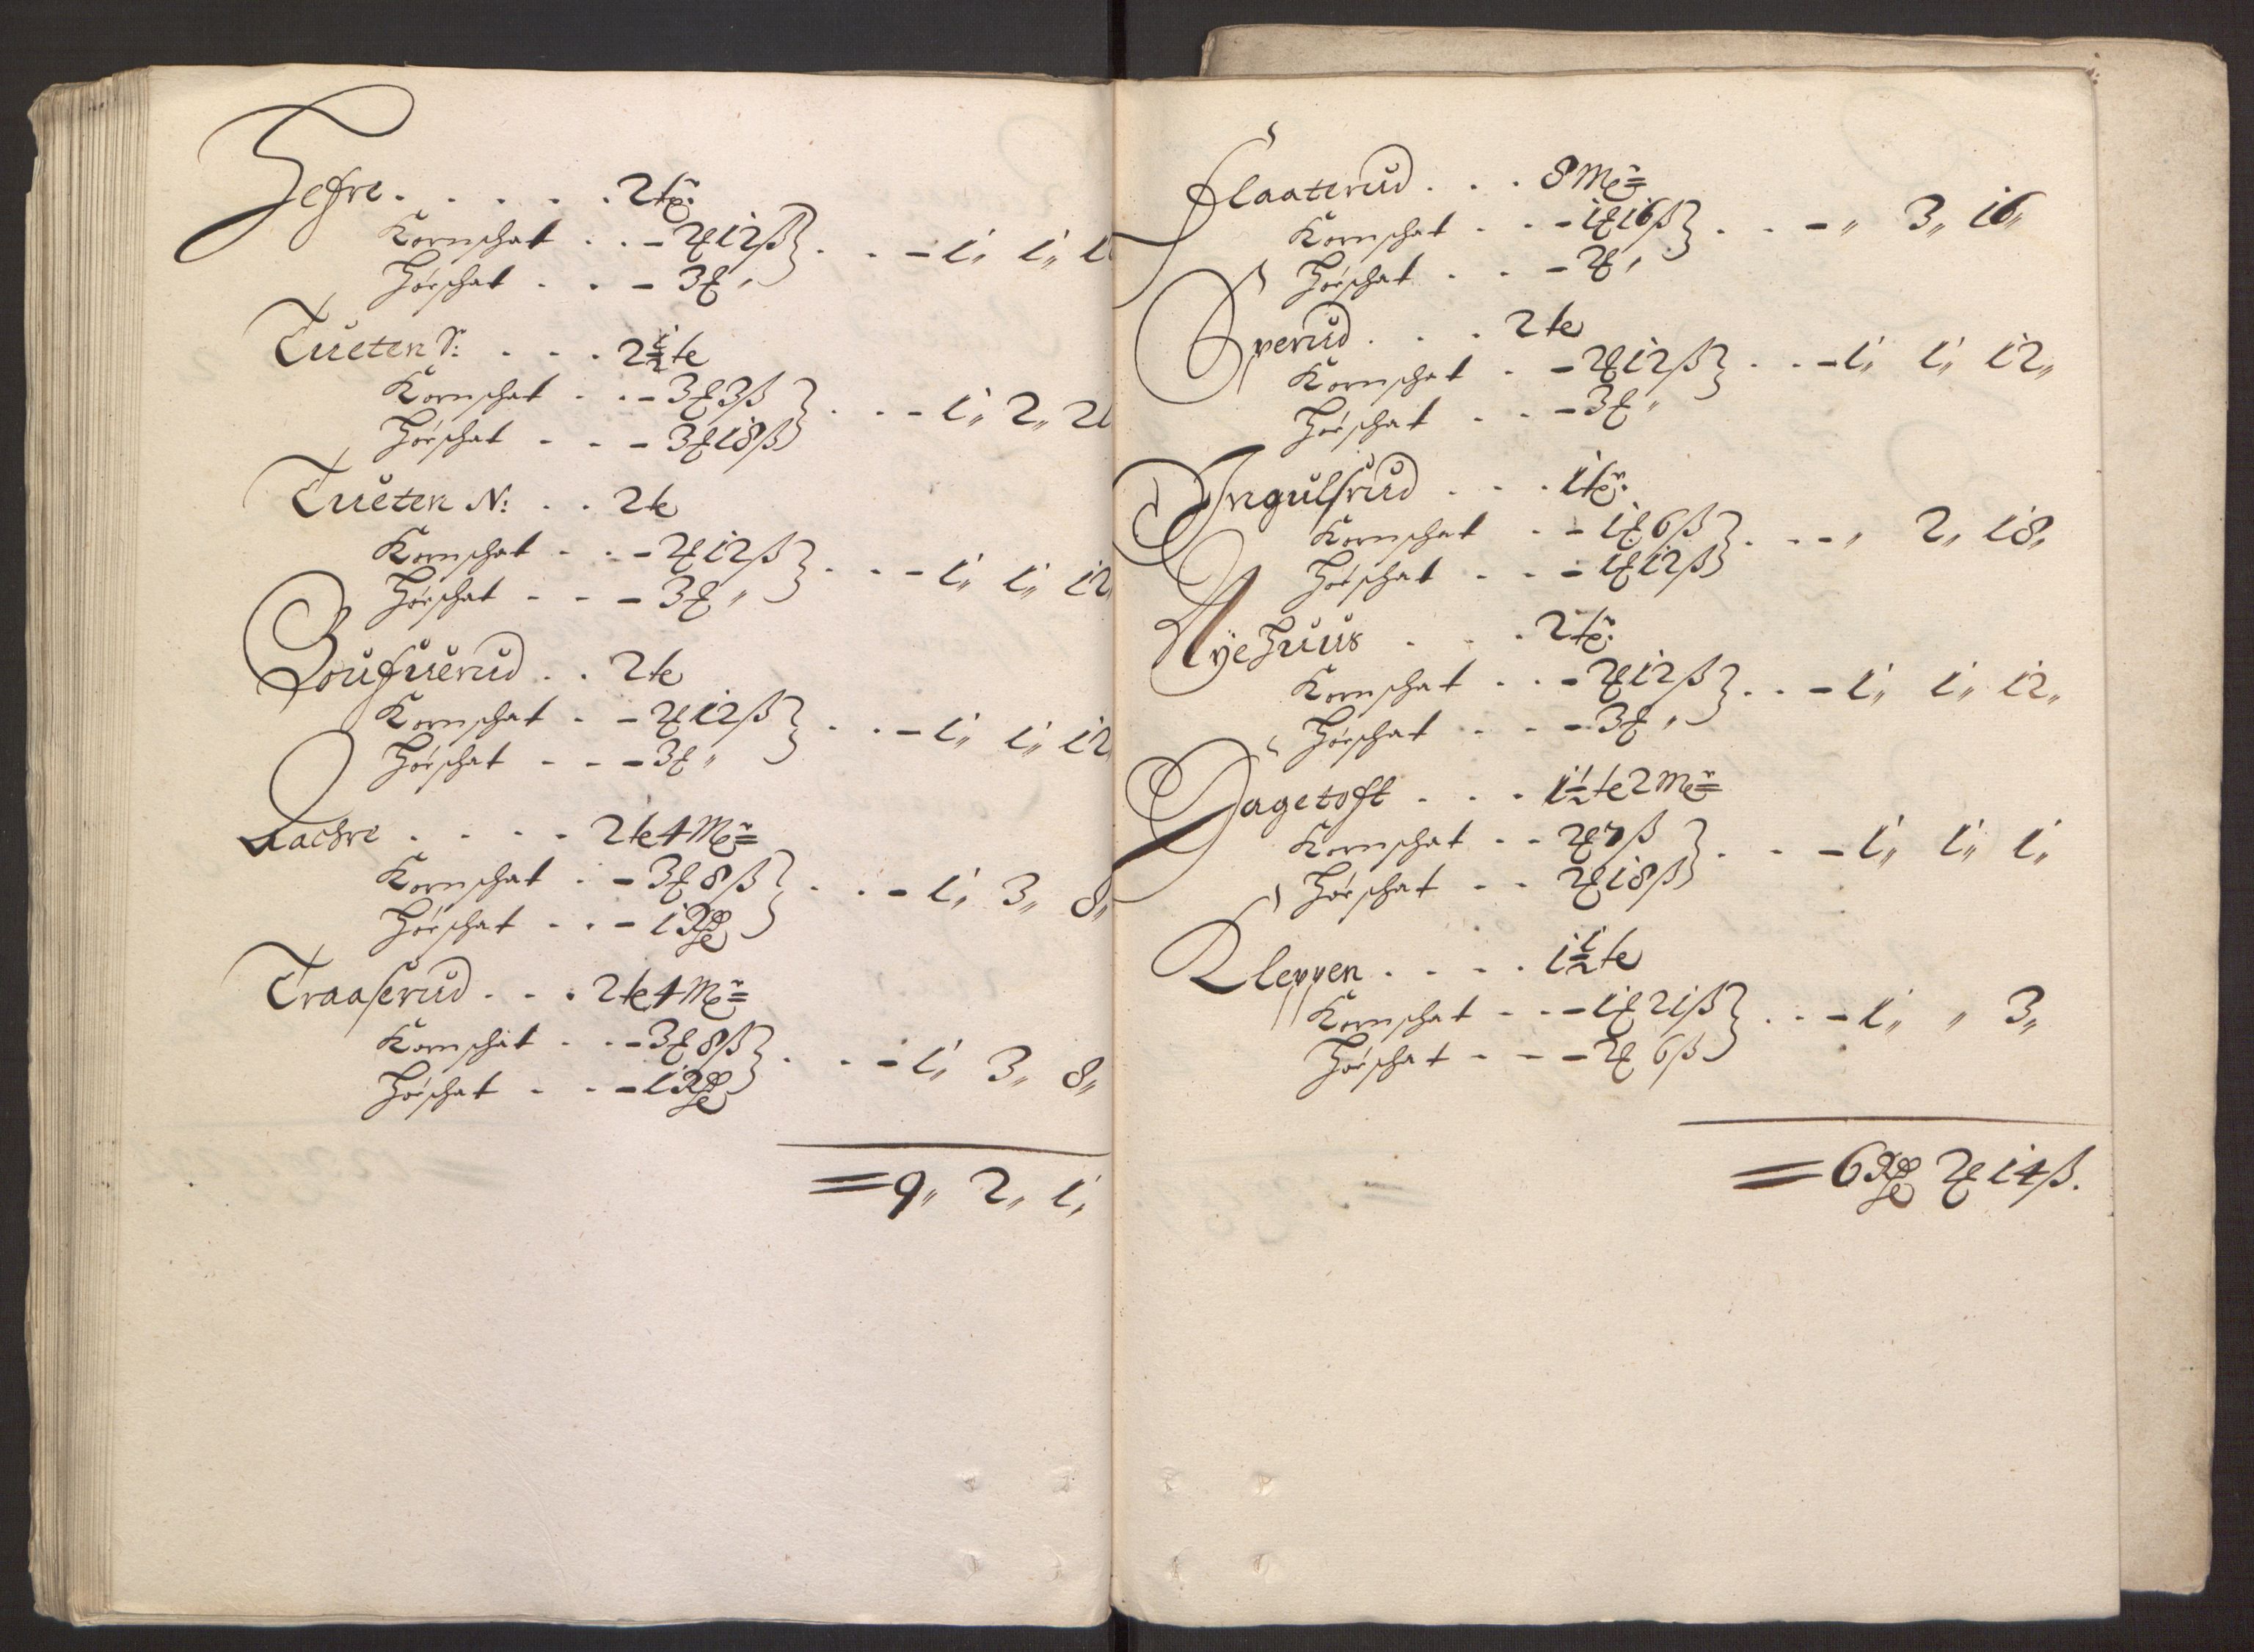 Jefre . . . . . 2 tr:
Kornschat . . - 2 ₰ 12 ß } . . - 1„ 1„ 1
Hörschat . . - 3 ₰ „
Tueten S: . . . 2½ te
Kornschat . . - 3 ₰ 3 ß } . . . - 1„ 2„ 21
Hörschat - . - 3 ₰ 18 ß
Tueten N: . . 2 te
Kornschat . . - 2 ₰ 12 ß } . . . - 1„ 1„ 12
Hörschat - - - 3 ₰ „
Kornschat . - 2 ₰ 12 ß } . . . - 1„ 1„ 12
2 te
Hörschat - - - 3 ₰ „
. . . . 2 te 4 Mr=
Kornschat . - 3 ₰ 8 ß } . . . - 1„ 3„ 8„
Hörschat . . - 1 Rde
Traaserud . . . 2 te 4 Mr=
Kornschat . . - 3 ₰ 8 ß } . . - 1„ 3„ 8„
Hörschat . . - 1 Rde
= 9„ 2„ 1„
Flaaterud . . . 8 Mr=
Kornschat . . - 1 ₰ 16 ß } . . . - „ 3„ 16„
Hörschat . . - 2 ₰ „
Operud . . . 2 te
Kornschat . - 2 ₰ 12 ß } . . . - 1„ 1„ 12„
Hörschat . . - 3 ₰ „
Ingulsrud . . . 1 tr:
Kornschat . - 1 ₰ 6 ß } . . . - „ 2„ 18„
Hörschat . . - 1 ₰ 12 ß
Nÿehuus . . . 2 tr:
Kornschat . . - 2 ₰ 12 ß } . . - 1„ 1„ 12„
Hörschat . . - 3 ₰ „
Hagetoft . . . 1½ te 2 Mr=
Kornschat . . 2 ₰ 7 ß } . . - 1„ 1„ 1„
Hörschat . . 2 ₰ 18 ß
Kleppen . . . . 1½ te
Kornschat . . - 1 ₰ 21 ß } . . - 1„ „ 3„
Hörschat - - - 2 ₰ 6 ß
= 6 Rde 2 ₰ 14 ß.